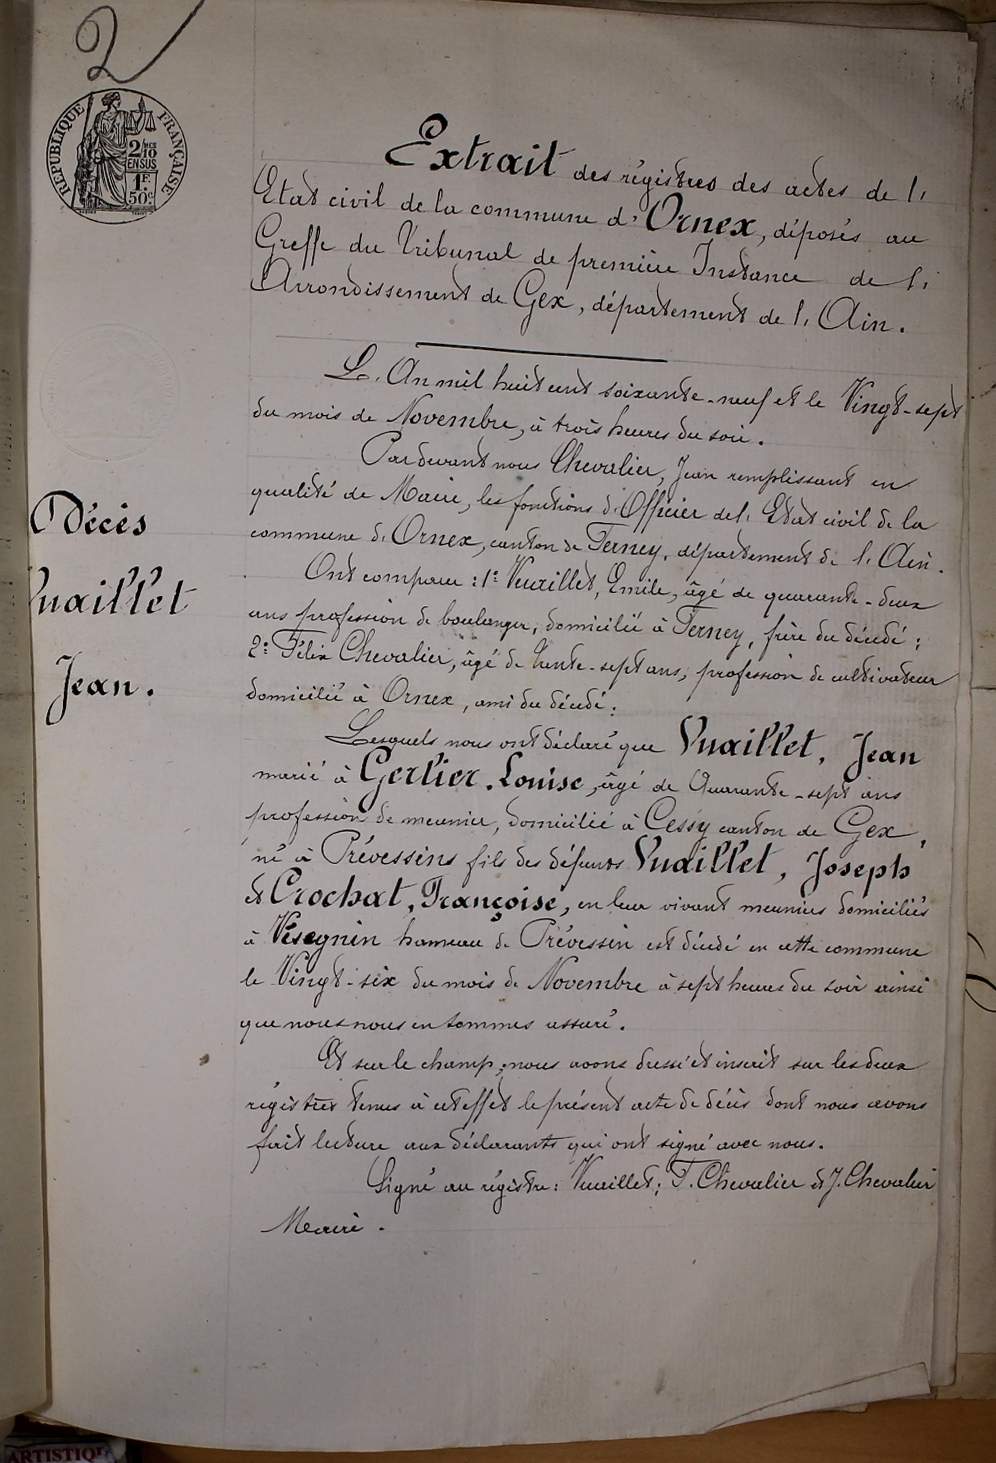 2
RÉPUBLIQUE FRANÇAISE
2/10
EN SUS
1F.
50c
Extrait des régistres des actes de l'
Etat civil de la commune d'Ornex, déposés au
Greffe du Tribunal de première Instance de l'
Arrondissement de Gex, département de l'Ain.
L'An mil huit cent soixante-neuf et le Vingt-sept
du mois de Novembre, à trois heures du soir.
Par devant nous Chevalier, Jean remplissant en
qualité de Maire, les fonctions d'Officier de l'Etat civil de la
commune d'Ornex, canton de Ferney, département de l'Ain.
Ont comparu : 1º Vuaillet, Emile, âgé de quarante-deux
ans profession de boulanger, domicilié à Ferney, frère du décédé ;
2º Félix Chevalier, âgé de trente-sept ans, profession de cultivateur
domicilié à Ornex, ami du décédé ;
Lesquels nous ont déclaré que Vuaillet, Jean
marié à Gerlier, Louise, âgé de Quarante-sept ans
profession de meunier, domicilié à Cessy canton de Gex,
né à Prévessins fils des défunts Vuaillet, Joseph
et Crochat, Françoise, en leur vivant meuniers domiciliés
à Vésegnin hameau de Prévessin est décédé en cette commune
le Vingt-six du mois de Novembre à sept heures du soir ainsi
que nous nous en sommes assuré.
Et sur le champ, nous avons dressé et inscrit sur les deux
régistres tenus à cet effet le présent acte de décès dont nous avons
fait lecture aux déclarants qui ont signé avec nous.
Signé au régistre : Vuaillet ; F. Chevalier et J. Chevalier
Maire.
Décès
Vuaillet
Jean.
ARTISTIQU